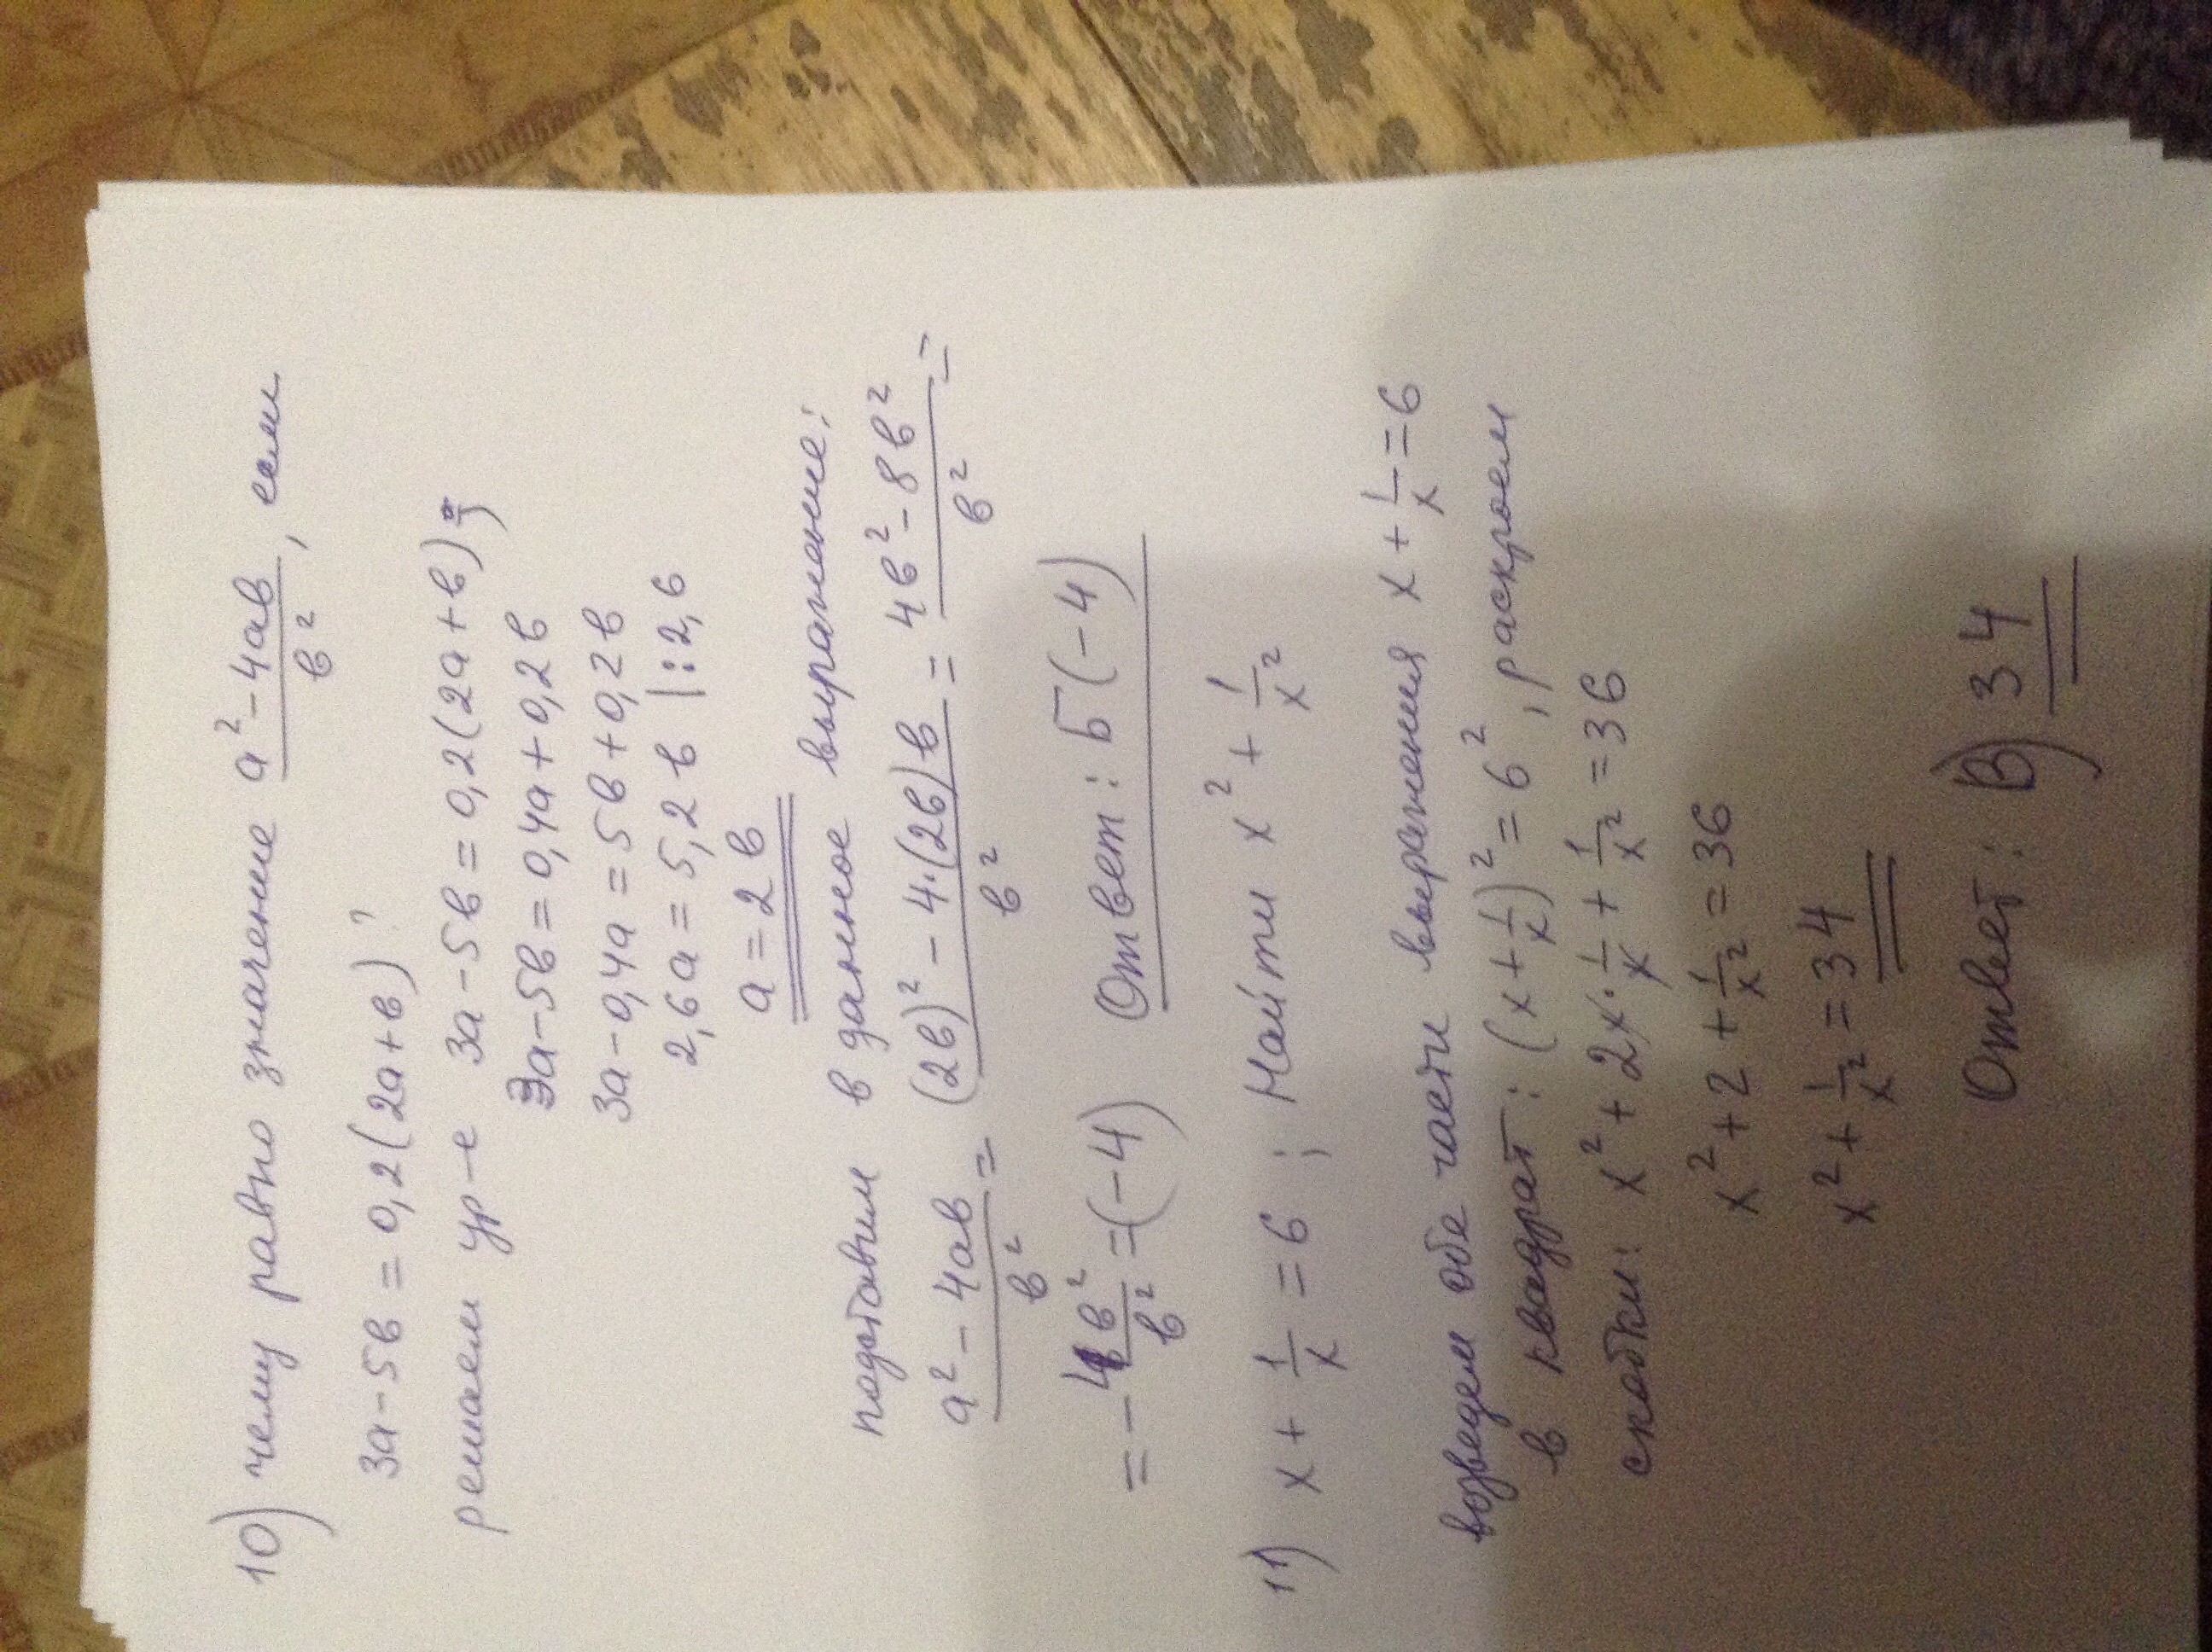 10) чему равно значение a² - 4ab / b², если
3a - 5b = 0,2(2a+b)?
решаем ур-е 3a - 5b = 0,2(2a+b);
3a - 5b = 0,4a + 0,2b
3a - 0,4a = 5b + 0,2b
2,6a = 5,2b |:2,6
a = 2b
подставим в данное выражение:
a² - 4ab / b² = (2b)² - 4·(2b)b / b² = 4b² - 8b² / b² =
= -4b² / b² = (-4) Ответ: Б(-4)
11) x + 1/x = 6 ; Найти x² + 1/x²
возведем обе части выражения x + 1/x = 6
в квадрат: (x + 1/x)² = 6², раскроем
скобки: x² + 2x·1/x + 1/x² = 36
x² + 2 + 1/x² = 36
x² + 1/x² = 34
Ответ: В) 34